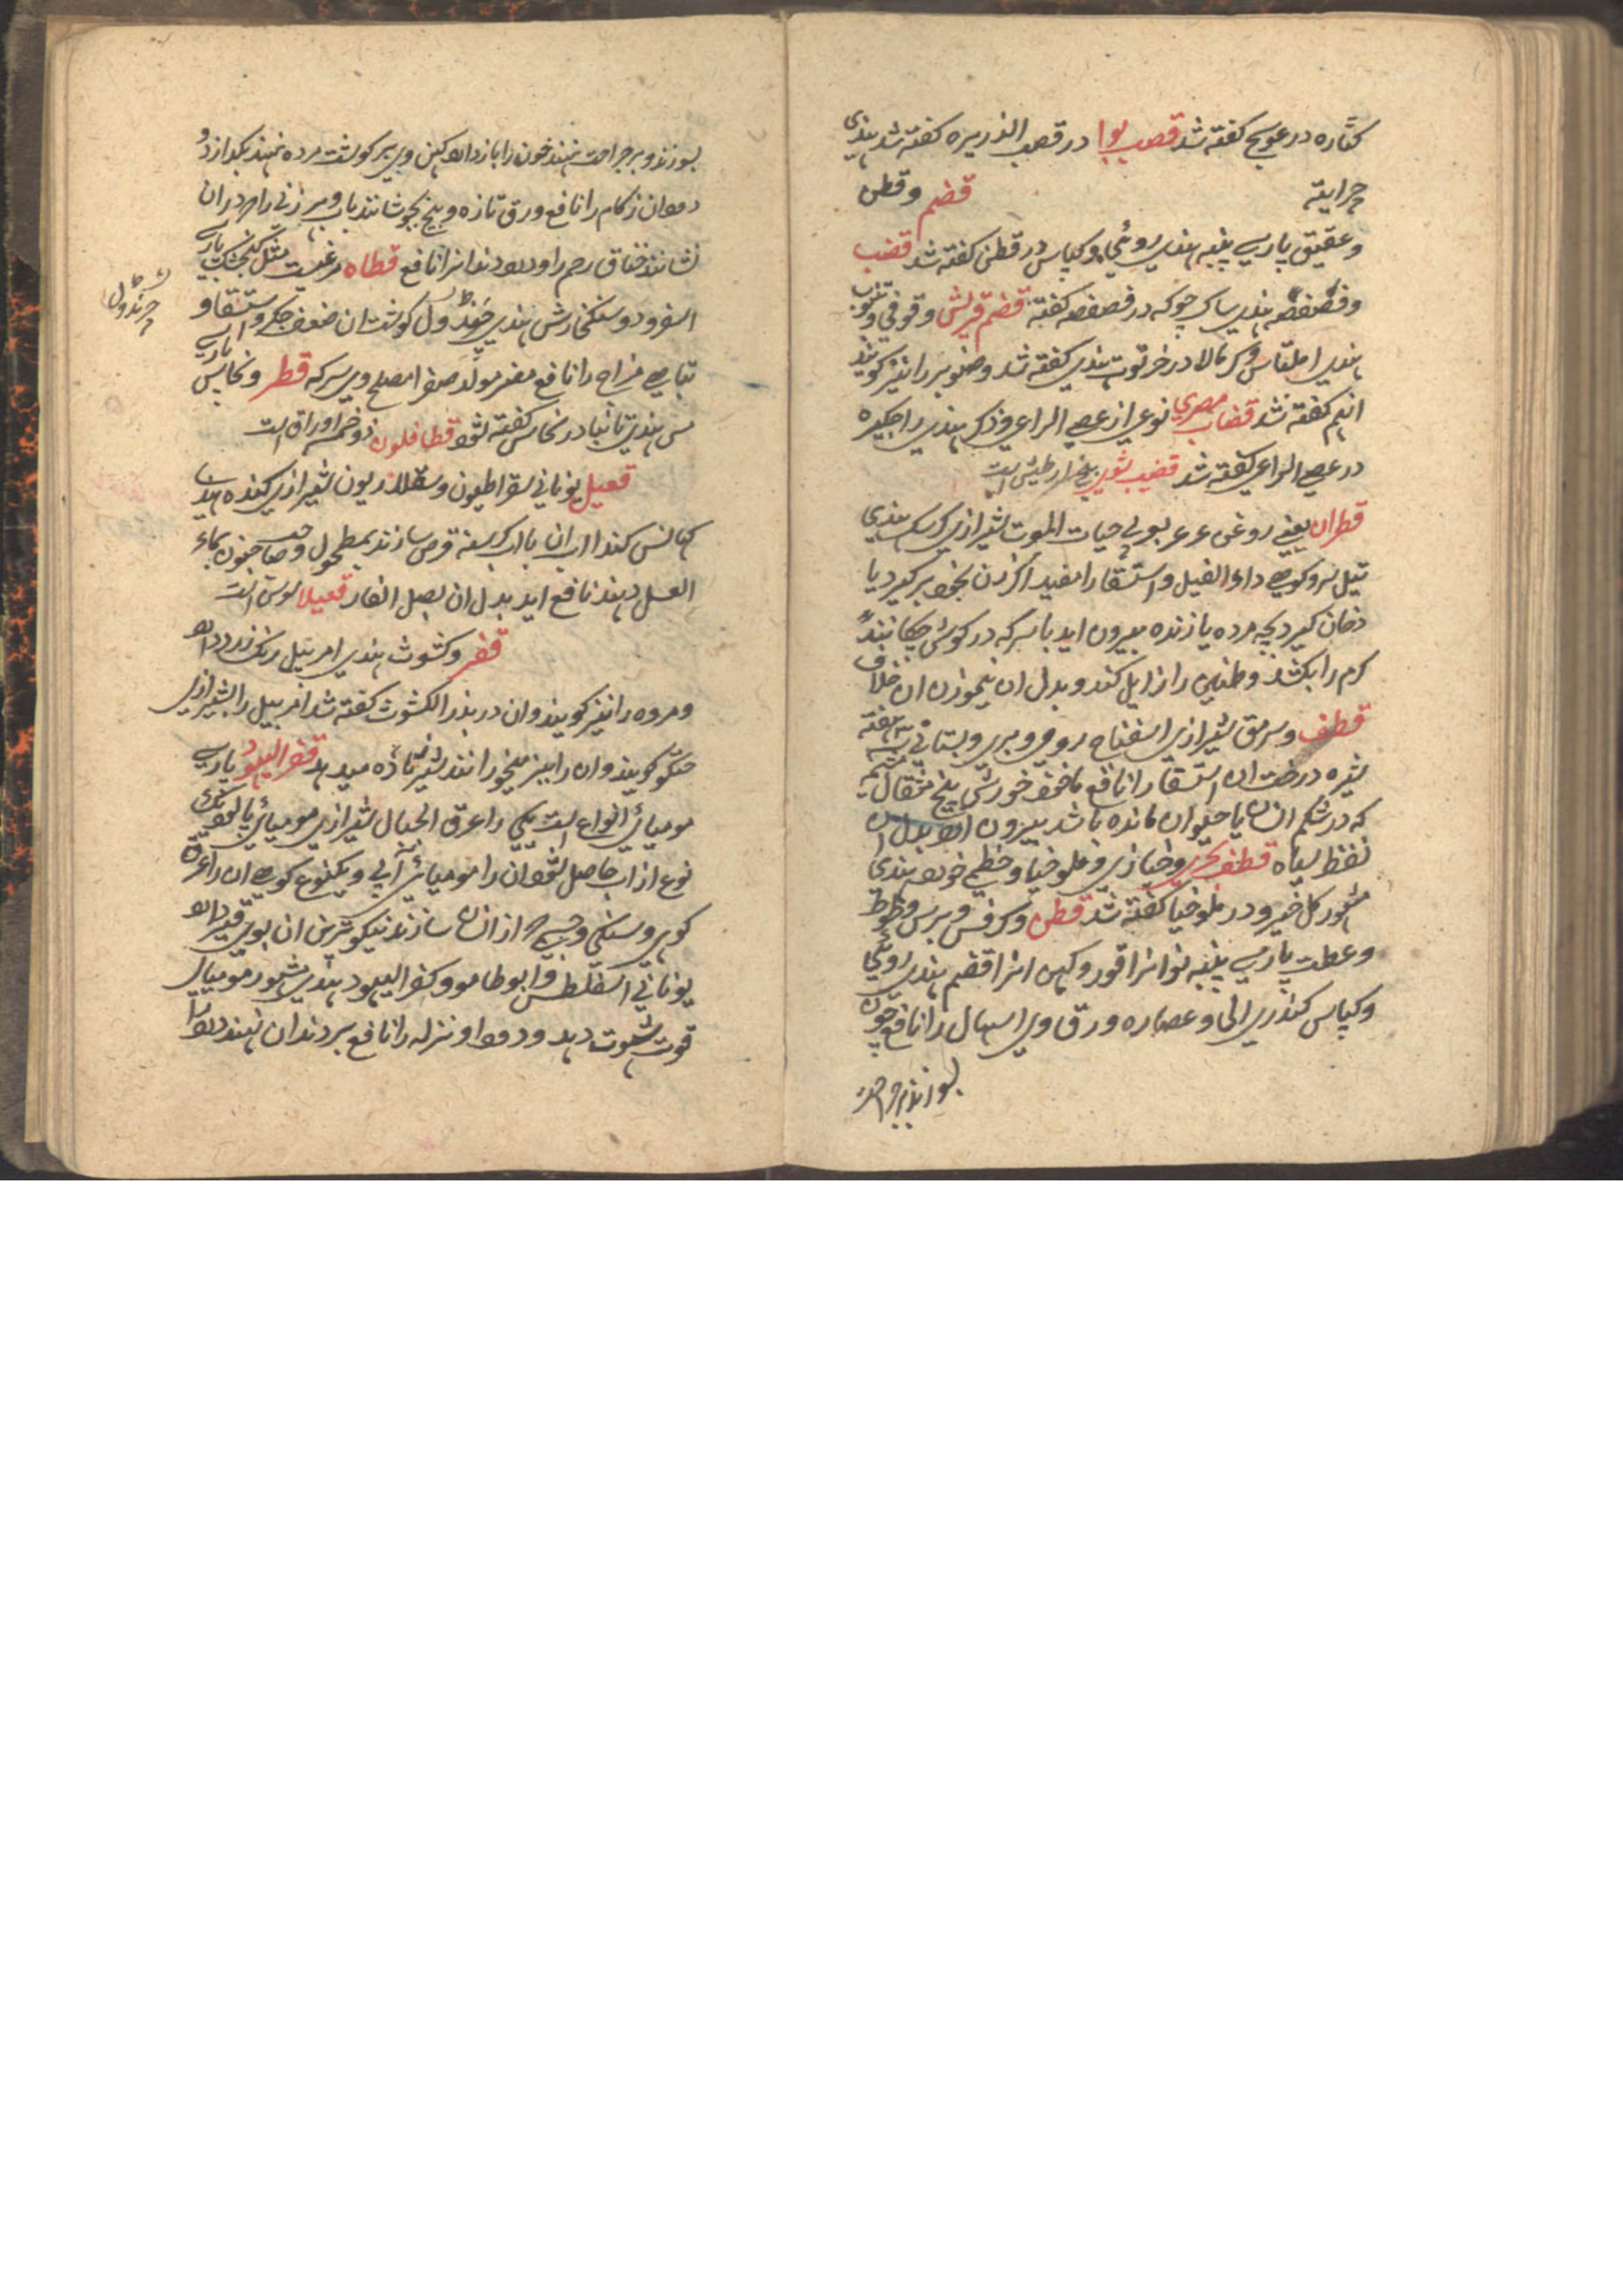 کتاره در عوسج کفته شد قصب بوا در قصب الذریره کفته شد هندی
چرایته قضم و قطن
و عقیق پارسی پنبه هندی روئی و کپاس در قطن کفته شد قضب
و فصفصه هندی ساک چوکه در فصفصه کفته قضم قریش و قوفی و تنوب
هندی املتاس و کرمالا در خرتوت هندی کفته شد و صنوبر را نیز کویند
انهم کفته شد قضاب مصری نوعی از عصی الراعی و ذکر هندی راجکیره
در عصی الراعی کفته شد قضیب
قطران یعنی روغن عرعر بوبی حیات الموت شیرازی کرسک هندی
تیل نرو کوهی داء الفیل و استسقا را مفید اکر زن بخود برکیرد یا
دخان کیرد بچه مرده یا زنده بیرون اید با سرکه در کوش چکانند
کرم را بکشد و طنین را زایل کند و بدل ان بنموزن ان
قطف و سرمق شیرازی اسفناخ رومی و بری و بستانی
ثمره درخت ان استسقا را نافع خورش پنج مثقال
که در شکم انسان یا حیوان مانده باشد بیرون ارد بدل ان
نفط سیاه قطف بحری و خبازی و ملوخیا و خطمی خورد هندی
مشهور کل خیرو در ملوخیا کفته شد قطن و کرفس و برس و طوط
و عطب پارسی پنبه نو انرا قور و کهن انرا قضم هندی روئی
و کپاس کندری الحا و عصاره ورق وی اسهال را نافع چون
بسوزند و بر جراحت
بسوزند و بر جراحت نهند خون را باز دارد کهن وی بر کوشت مرده نهند بکدازد و
دود ان زکام را نافع ورق تازه و بیخ بجوشانند باب و بر زنی را در ان
نشانند خناق رحم را و درد دندانرا نافع قطاه مرغیست مثل کنجشک پارسی
اسفرود و سنکخارش هندی چنڈول کوشت ان ضعف جکر و استسقا و
تباهی مزاج را نافع مضر مولد صفرا مصلح وی سرکه قطر و نحاس پارسی
مس هندی تانبا در نحاس کفته شود قطافلون ذو خمسه اوراق است
قعیل یونانی سقراطیون و سقلاذریون شیرازی کنده هندی
کهانس کند ااب ان باارد کرسنه قرص سازند بمطحول و صاحب جنون بماء
العسل دهند نافع اید بدل ان بصل الفار قعیلا سوس است
قفر و کشوث هندی امربیل رنک زرد دارد
و مروه را نیز کویند و ان در بذر الکشوث کفته شد امربیل را بشیرازی
کویند و ان را ببز میخورانند شیر تازه میدهد قفر الیهود پارسی
مومیائی انواع است یکی را عرق الجبال شیرازی مومیائی پالوده یک
نوع از اب حاصل شود ان را مومیائی آبی و یکنوع کوهی ان را عرق
کوهی و سنکی و از انسان سازند نیکوترین ان بوی قیر دارد
یونانی اسفلطس و ابوطامو و کفر الیهود هندی مشهور مومیائی
قوت شهوت دهد و دوار و نزله را نافع بر دندان نهند درد
چرنڈول